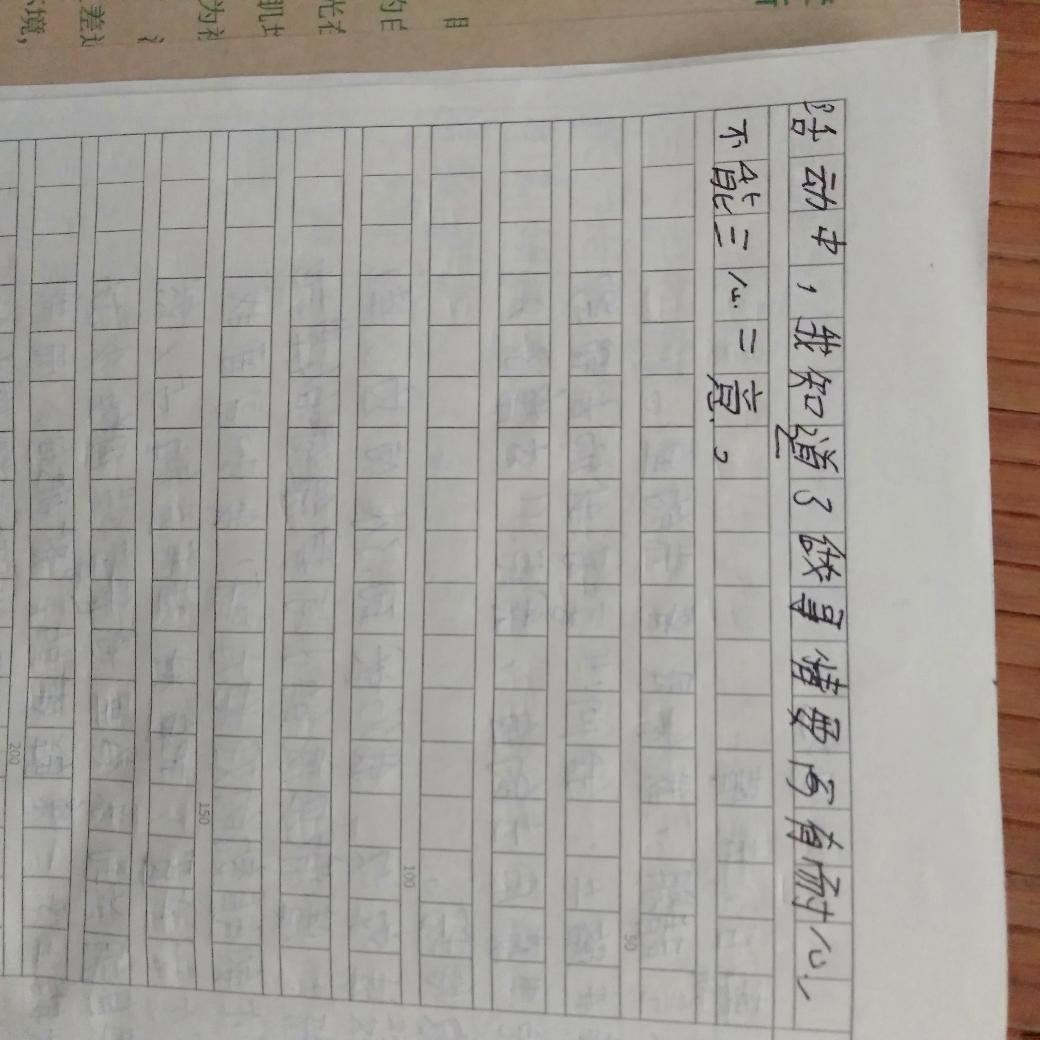 动中，我知道了做事情要有耐心，
不能三心二意。
50
100
150
200